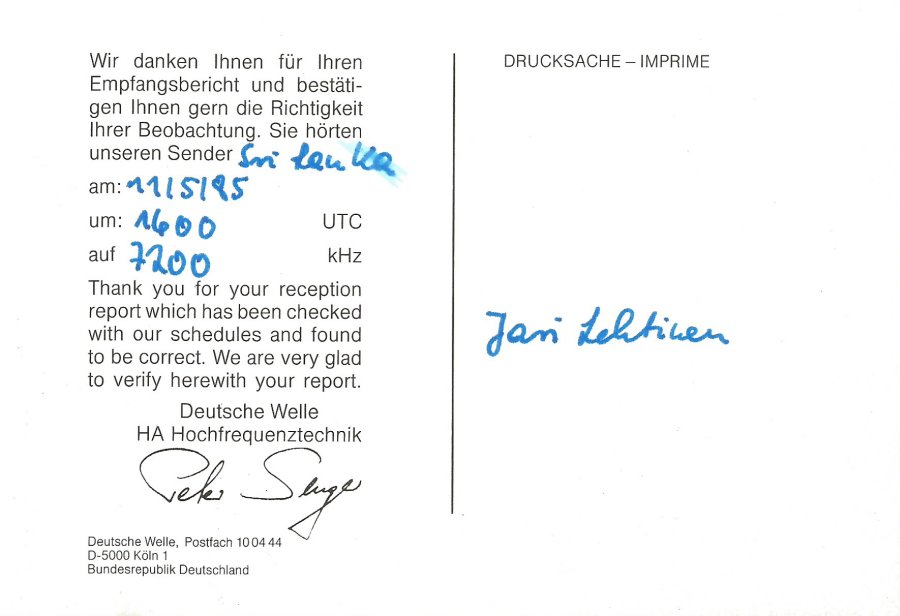 Wir danken Ihnen für Ihren
Empfangsbericht und bestäti-
gen Ihnen gern die Richtigkeit
Ihrer Beobachtung. Sie hörten
unseren Sender Sri Lanka
am: 11/5/85
um: 1600 UTC
auf 7200 kHz
Thank you for your reception
report which has been checked
with our schedules and found
to be correct. We are very glad
to verify herewith your report.
Deutsche Welle
HA Hochfrequenztechnik
Peter Senger
Deutsche Welle, Postfach 10 04 44
D-5000 Köln 1
Bundesrepublik Deutschland
DRUCKSACHE – IMPRIME
Jari Lehtinen